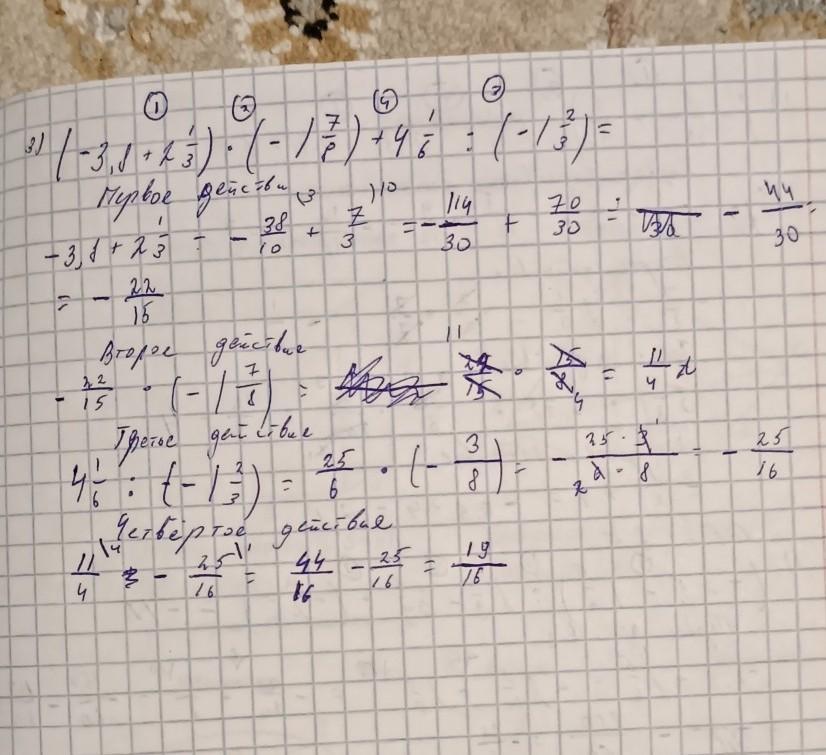 ① ② ④ ③
3) (-3,8 + 2 1/3) · (-1 7/8) + 4 1/6 : (-1 2/3) =
Первое действи
-3,8 + 2 1/3 = - 38/10 \3 + 7/3 \10 = - 114/30 + 70/30 = - 44/30 =
= - 22/15
Второе действие
- 22/15 · (-1 7/8) = 11 22/15 · 15/8 4 = 11/4
Третье действие
4 1/6 : (-1 2/3) = 25/6 · (- 3/8) = - 25 · 3 1/2 · 8 = - 25/16
Четвёртое действия
11/4 \4 - 25/16 \1 = 44/16 - 25/16 = 19/16